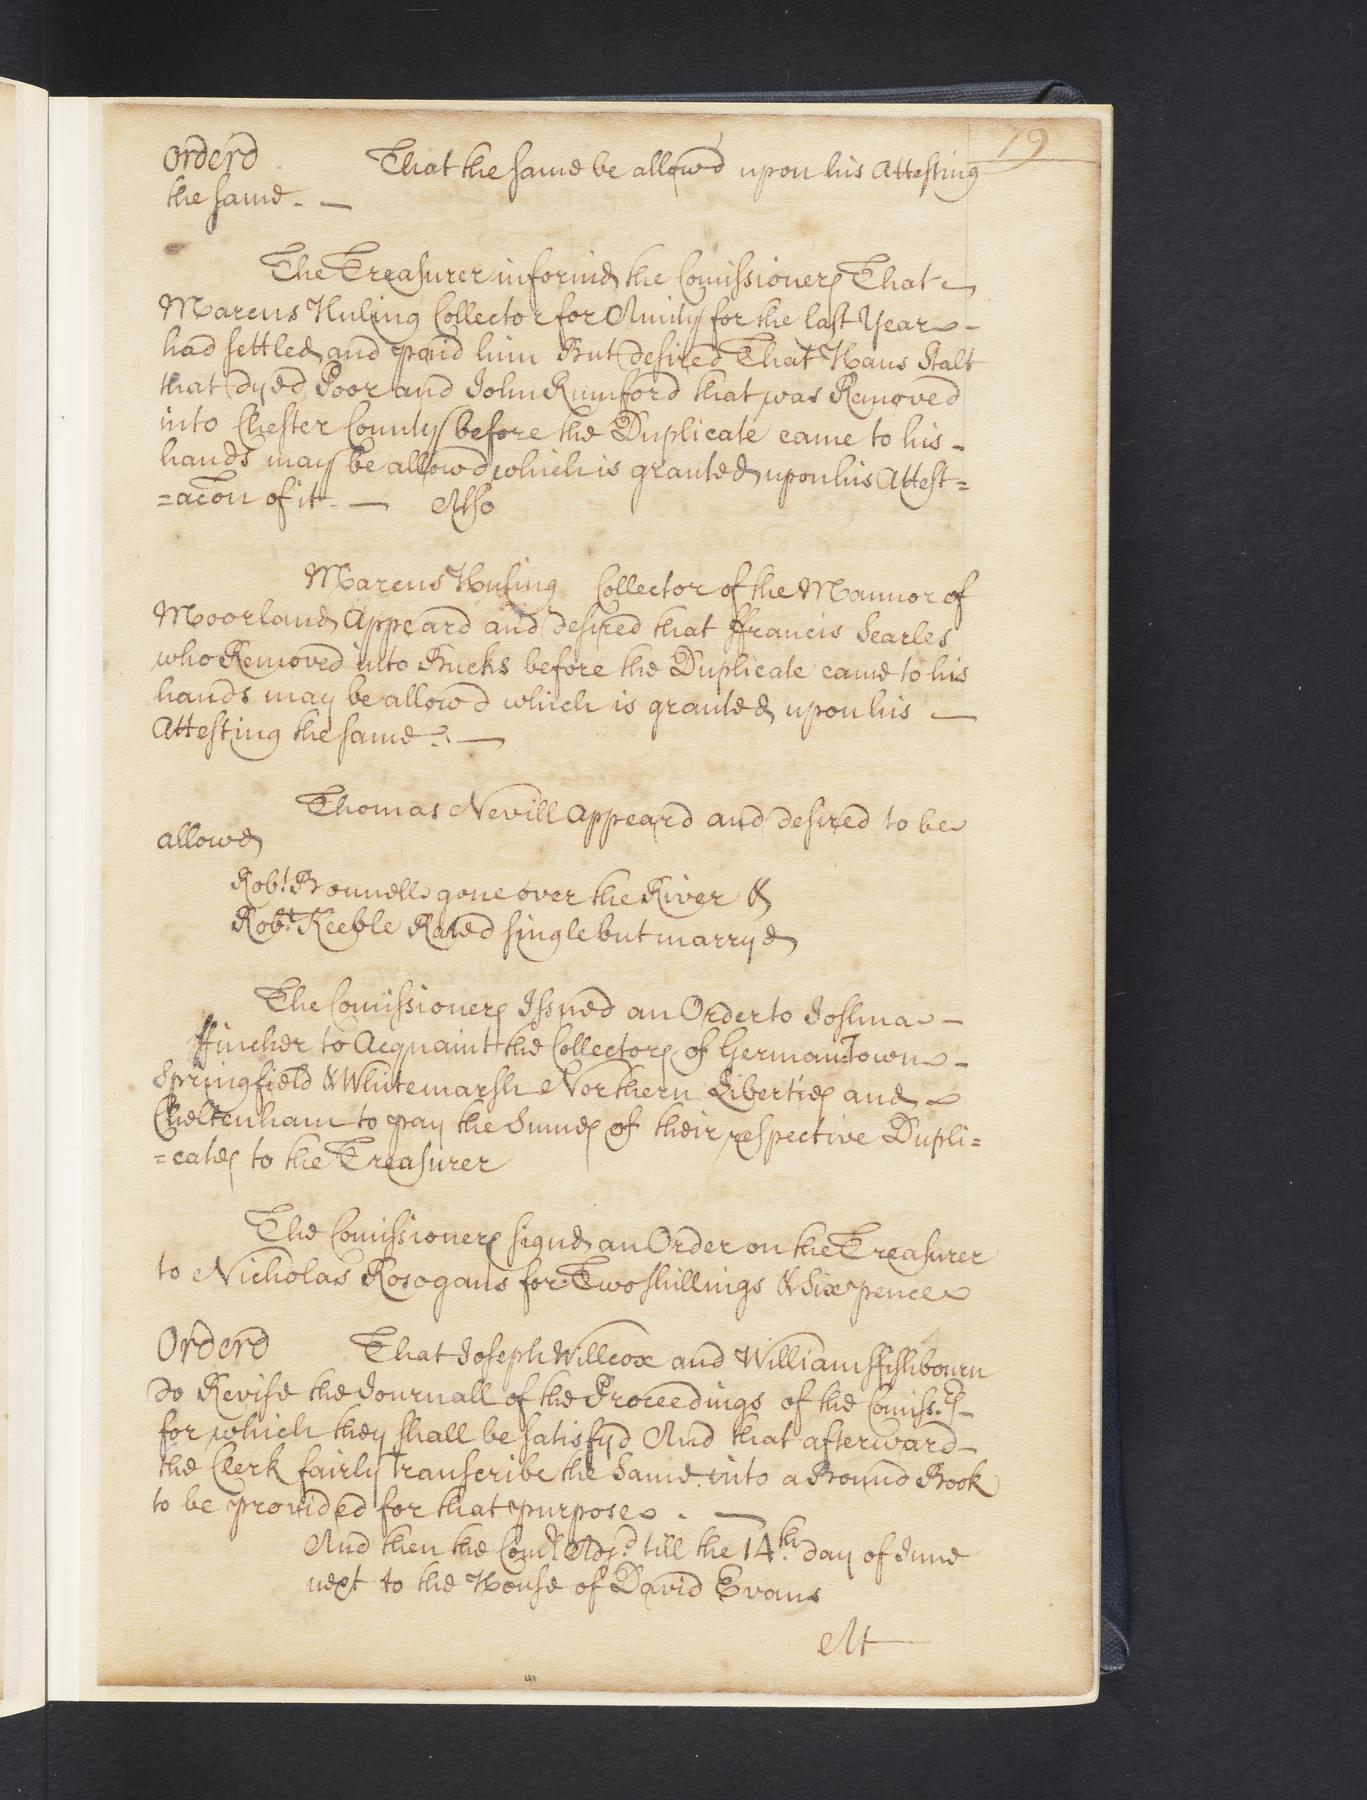 79
Orderd That the same be allow'd upon his Attesting
the same. —
The Treasurer informd the Comissioners That
Marcus Huling Collector for Amity for the last Year -
had settled and paid him But desired That Hans Stalt
that dyed Poor and John Rumford that was Removed
into Chester County before the Duplicate came to his -
hands may be allowd which is granted upon his Attest=
=acon of it. — Also
Marcus Huling Collector of the Mannor of
Moorland Appeard and desired that ffrancis Searles
who Removed into Bucks before the Duplicate came to his
hands may be allow'd which is granted upon his —
Attesting the same. —
Thomas Nevill Appeard and desired to be
allowd
Robt. Bonnell gone over the River &
Robt. Keeble Rated single but marryd
The Comissioners Issued an Order to Joshua -
ffincher to Acquaint the Collectors of German Town -
Springfield & Whitemarsh Northern Liberties and
Cheltenham to pay the Sumes of their respective Dupli=
=cates to the Treasurer
The Comissioners signd an Order on the Treasurer
to Nicholas Rosogans for Two shillings & Six pence
Orderd That Joseph Willcox and William ffishbourn
do Revise the Journall of the Proceedings of the Comiss.rs -
for which they shall be satisfyd And that afterward -
the Clerk fairly transcribe the Same into a Bound Book
to be provided for that purpose. —
And then the Com.rs Adj.d till the 14.th day of June
next to the House of David Evans
At